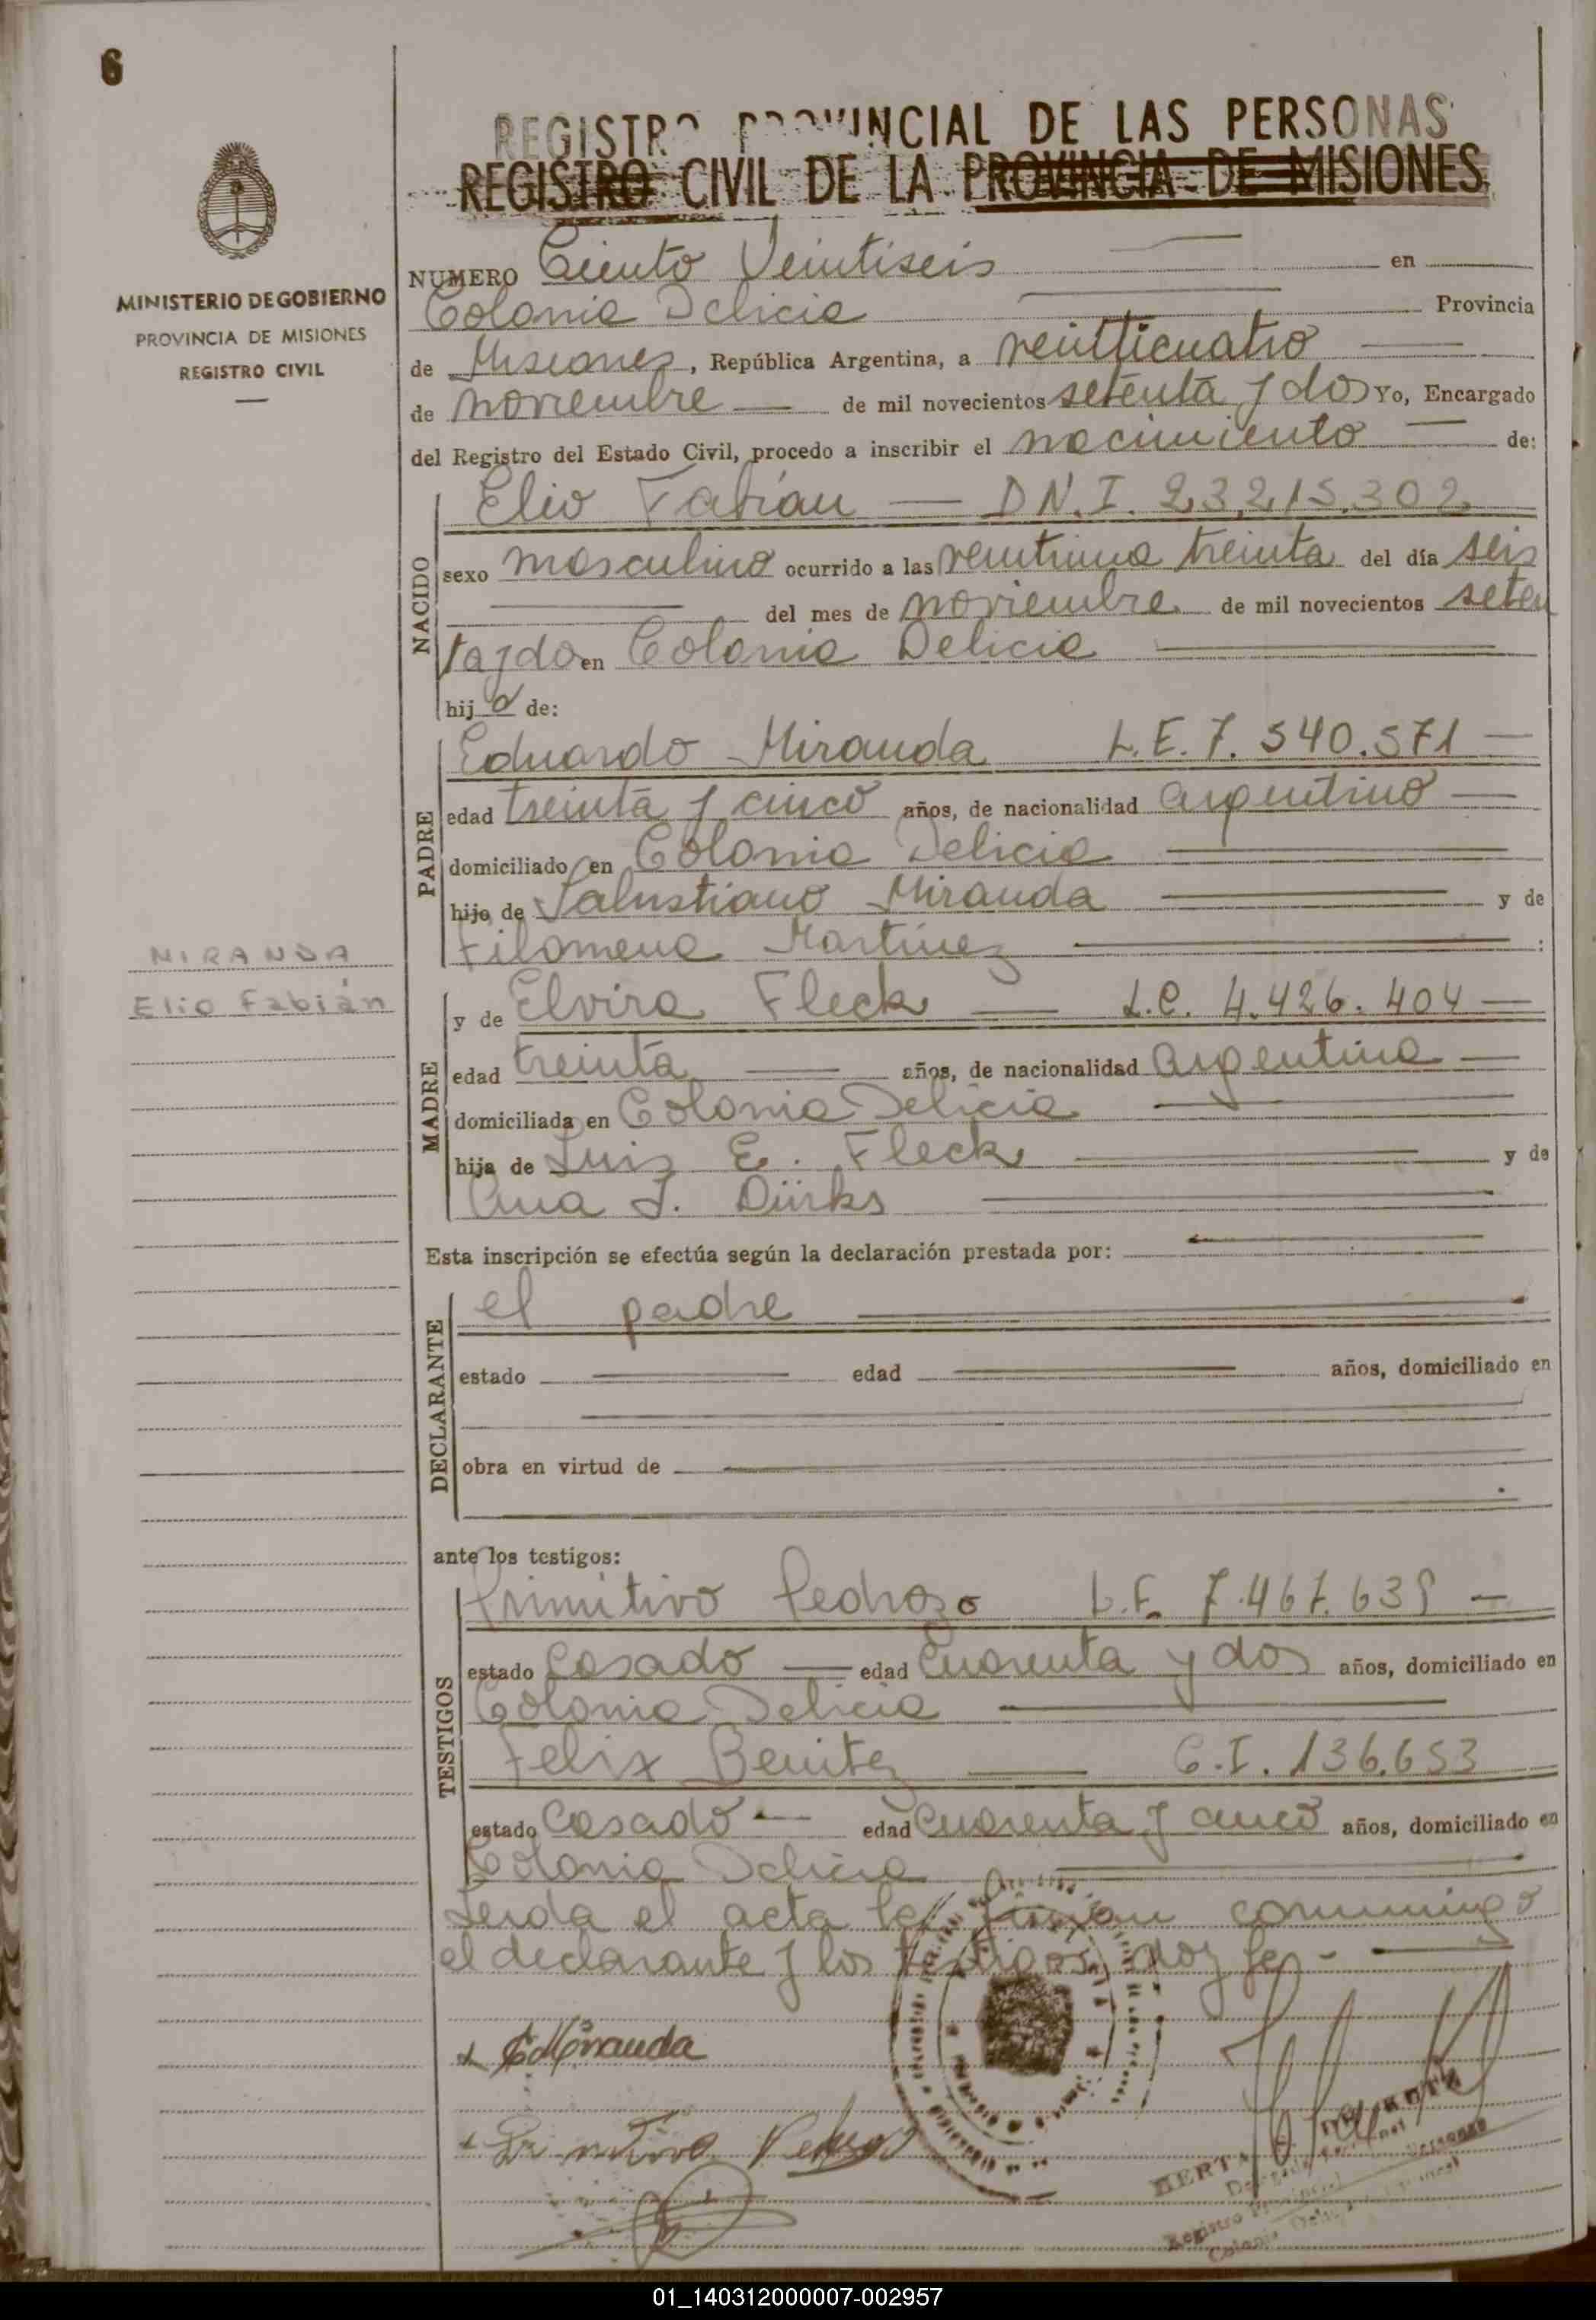 6
REGISTRO PROVINCIAL DE LAS PERSONAS
REGISTRO CIVIL DE LA PROVINCIA DE MISIONES
MINISTERIO DE GOBIERNO
PROVINCIA DE MISIONES
REGISTRO CIVIL
NUMERO Ciento Veintiseis en
Colonia Delicia Provincia
de Misiones, República Argentina, a veinticuatro
de noviembre de mil novecientos setenta y dos Yo, Encargado
del Registro del Estado Civil, procedo a inscribir el nacimiento de:
NACIDO
Elio Fabián — D.N.I. 23.215.302
sexo masculino ocurrido a las veintiuna treinta del día seis
del mes de noviembre de mil novecientos seten
ta y dos en Colonia Delicia
hijo de:
PADRE
Eduardo Miranda L.E. 7.540.571 —
edad treinta y cinco años, de nacionalidad argentino —
domiciliado en Colonia Delicia
hijo de Salustiano Miranda y de
Filomena Martínez :
MIRANDA
Elio Fabián
MADRE
y de Elvira Fleck — L.C. 4.426.404 —
edad treinta años, de nacionalidad argentina —
domiciliada en Colonia Delicia
hija de Luis E. Fleck y de
Ana J. Dürks
Esta inscripción se efectúa según la declaración prestada por:
DECLARANTE
el padre
estado edad años, domiciliado en
obra en virtud de
ante los testigos:
TESTIGOS
Primitivo Pedrozo L.E. 7.467.639 —
estado Casado — edad Cuarenta y dos años, domiciliado en
Colonia Delicia
Felix Benitez — C.I. 136.653
estado Casado — edad Cuarenta y cinco años, domiciliado en
Colonia Delicia
Leida el acta la firman conmigo
el declarante y los testigos, doy fe. —
E Miranda
Primitivo Pedrozo
01_140312000007-002957